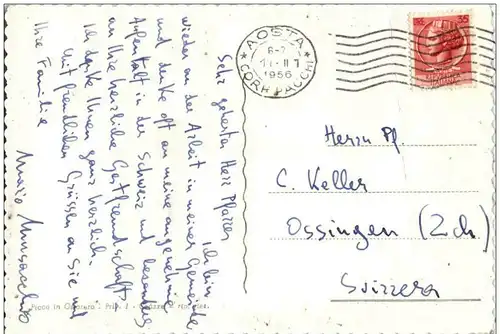 Sehr geehrter Herr Pfarrer
Ich bin
wieder an der Arbeit in meiner Gemeinde,
und denke oft an meine angenehmen
Aufenthalt in der Schweiz und besonders
an Ihre herzliche Gastfreundschaft.
Ich danke Ihnen ganz herzlich.
Mit freundlichen Grüssen an Sie und
Ihre Familie
Mario
AOSTA
1956
CORR. PACCHI
35
Herrn Pf
C. Keller
Ossingen (Zch.)
Svizzera